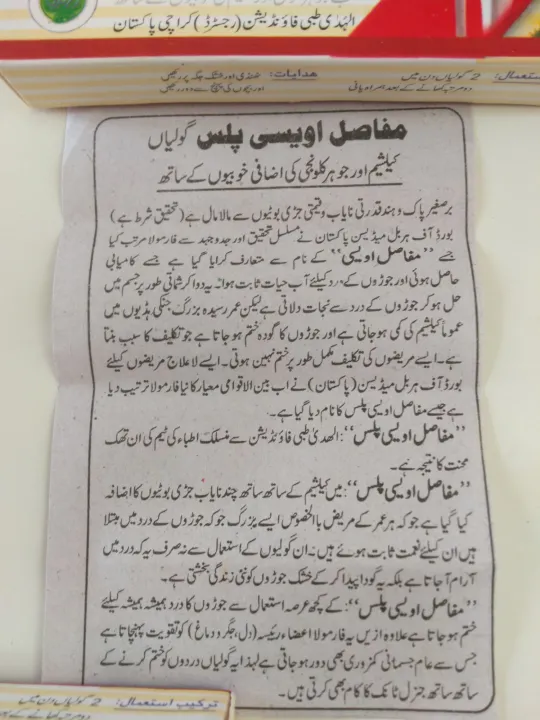 الہدٰی طبی فاؤنڈیشن (رجسٹرڈ) کراچی پاکستان
ھدایات: ٹھنڈی اور خشک جگہ پر رکھیں
اور بچوں کی پہنچ سے دور رکھیں
استعمال: 2 گولیاں دن میں
دو مرتبہ کھانے کے بعد ہمراہ پانی
مفاصل اویسی پلس گولیاں
کیلشیم اور جوہر کلونجی کی اضافی خوبیوں کے ساتھ
برصغیر پاک و ہند قدرتی نایاب و قیمتی جڑی بوٹیوں سے مالا مال ہے (تحقیق شرط ہے)
بورڈ آف ہربل میڈیسن پاکستان نے مسلسل تحقیق اور جدوجہد سے فارمولا مرتب کیا
جسے ”مفاصل اویسی“ کے نام سے متعارف کرایا گیا ہے جسے کامیابی
حاصل ہوئی اور جوڑوں کے درد کیلئے آب حیات ثابت ہوا۔ یہ دوا کرشماتی طور پر جسم میں
حل ہو کر جوڑوں کے درد سے نجات دلاتی ہے لیکن عمر رسیدہ بزرگ جنکی ہڈیوں میں
عموماً کیلشیم کی کمی ہو جاتی ہے اور جوڑوں کا گودہ ختم ہو جاتا ہے جو تکلیف کا سبب بنتا
ہے۔ ایسے مریضوں کی تکلیف مکمل طور پر ختم نہین ہوتی۔ ایسے لاعلاج مریضوں کیلئے
بورڈ آف ہربل میڈیسن (پاکستان) نے اب بین الاقوامی معیار کا نیا فارمولا ترتیب دیا
ہے جسے مفاصل اویسی پلس کا نام دیا گیا ہے۔
”مفاصل اویسی پلس“: الھدیٰ طبی فاؤنڈیشن سے منسلک اطباء کی ٹیم کی ان تھک
محنت کا نتیجہ ہے۔
”مفاصل اویسی پلس“: میں کیلشیم کے ساتھ ساتھ چند نایاب جڑی بوٹیوں کا اضافہ
کیا گیا ہے جو کہ ہر عمر کے مریض باالخصوص ایسے بزرگ جو کہ جوڑوں کے درد میں مبتلا
ہیں ان کیلئے نعمت ثابت ہوئے ہیں۔ ان گولیوں کے استعمال سے نہ صرف یہ کہ درد میں
آرام آجاتا ہے بلکہ یہ گودا پیدا کر کے خشک جوڑوں کو نئی زندگی بخشتی ہے۔
”مفاصل اویسی پلس“: کے کچھ عرصہ استعمال سے جوڑوں کا درد ہمیشہ ہمیشہ کیلئے
ختم ہو جاتا ہے علاوہ ازیں یہ فارمولا اعضاء رئیسہ (دل، جگر و دماغ) کو تقویت پہنچاتا ہے
جس سے عام جسمانی کمزوری بھی دور ہو جاتی ہے لہذا یہ گولیاں دردوں کو ختم کرنے کے
ساتھ ساتھ جنرل ٹانک کا کام بھی کرتی ہیں۔
ترکیب استعمال: 2 گولیاں دن میں